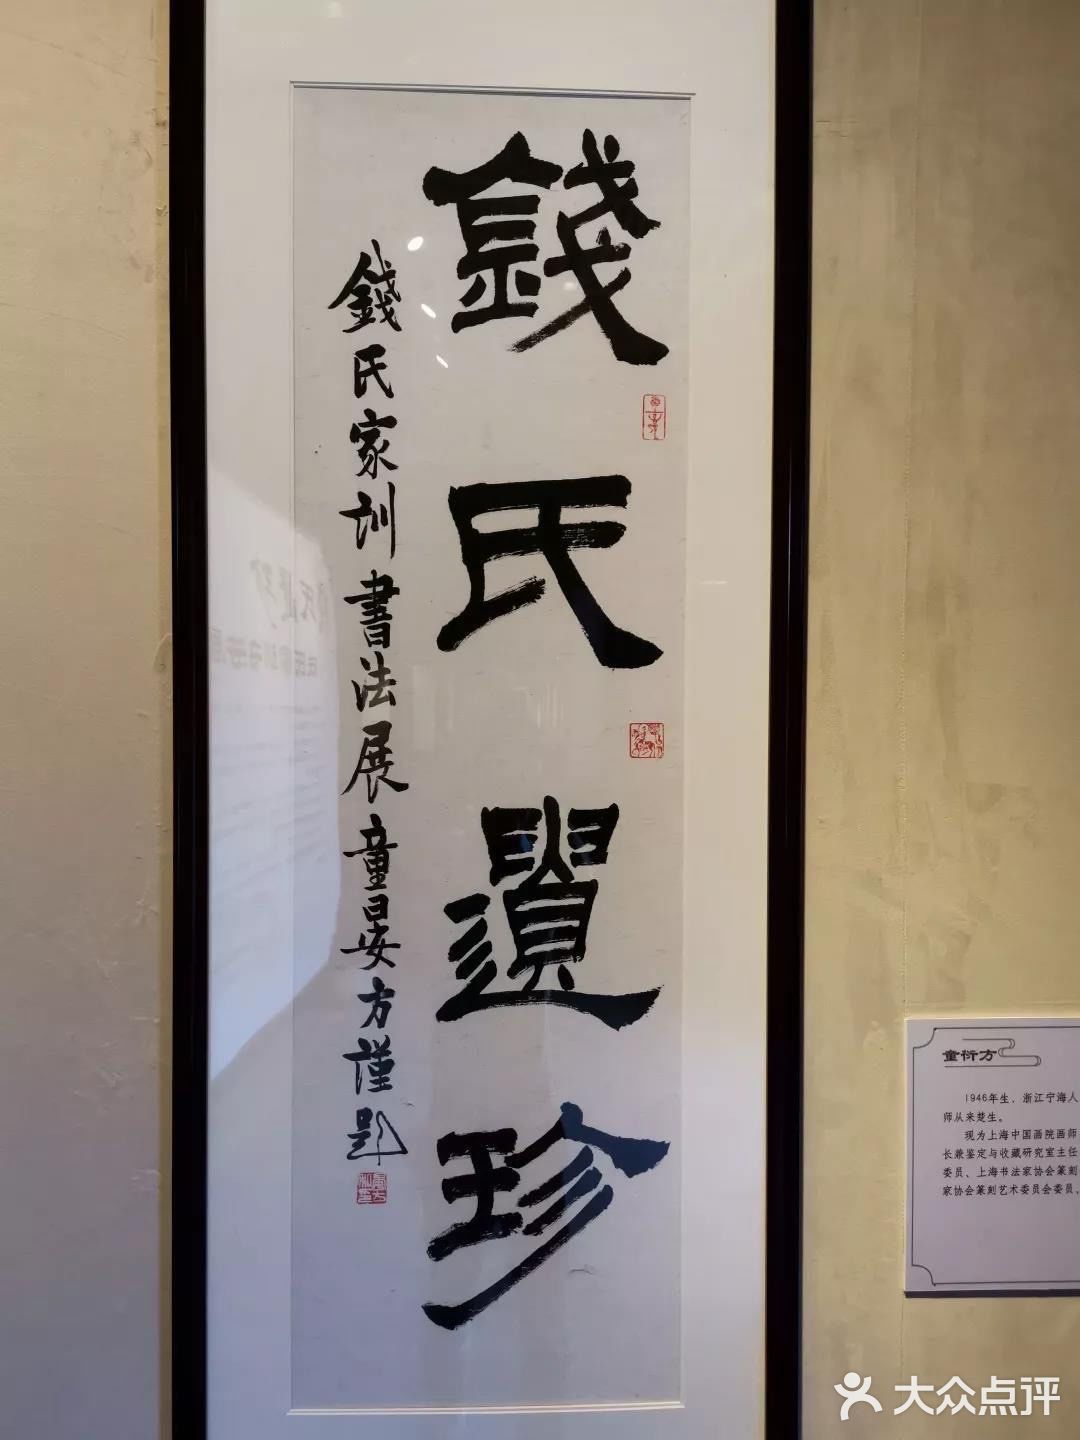 錢氏遺珍
錢氏家訓書法展童晏方謹題
童衍方
1946年生，浙江宁海人
师从来楚生。
现为上海中国画院画师
长兼鉴定与收藏研究室主任
委员、上海书法家协会篆刻
家协会篆刻艺术委员会委员、
大众点评